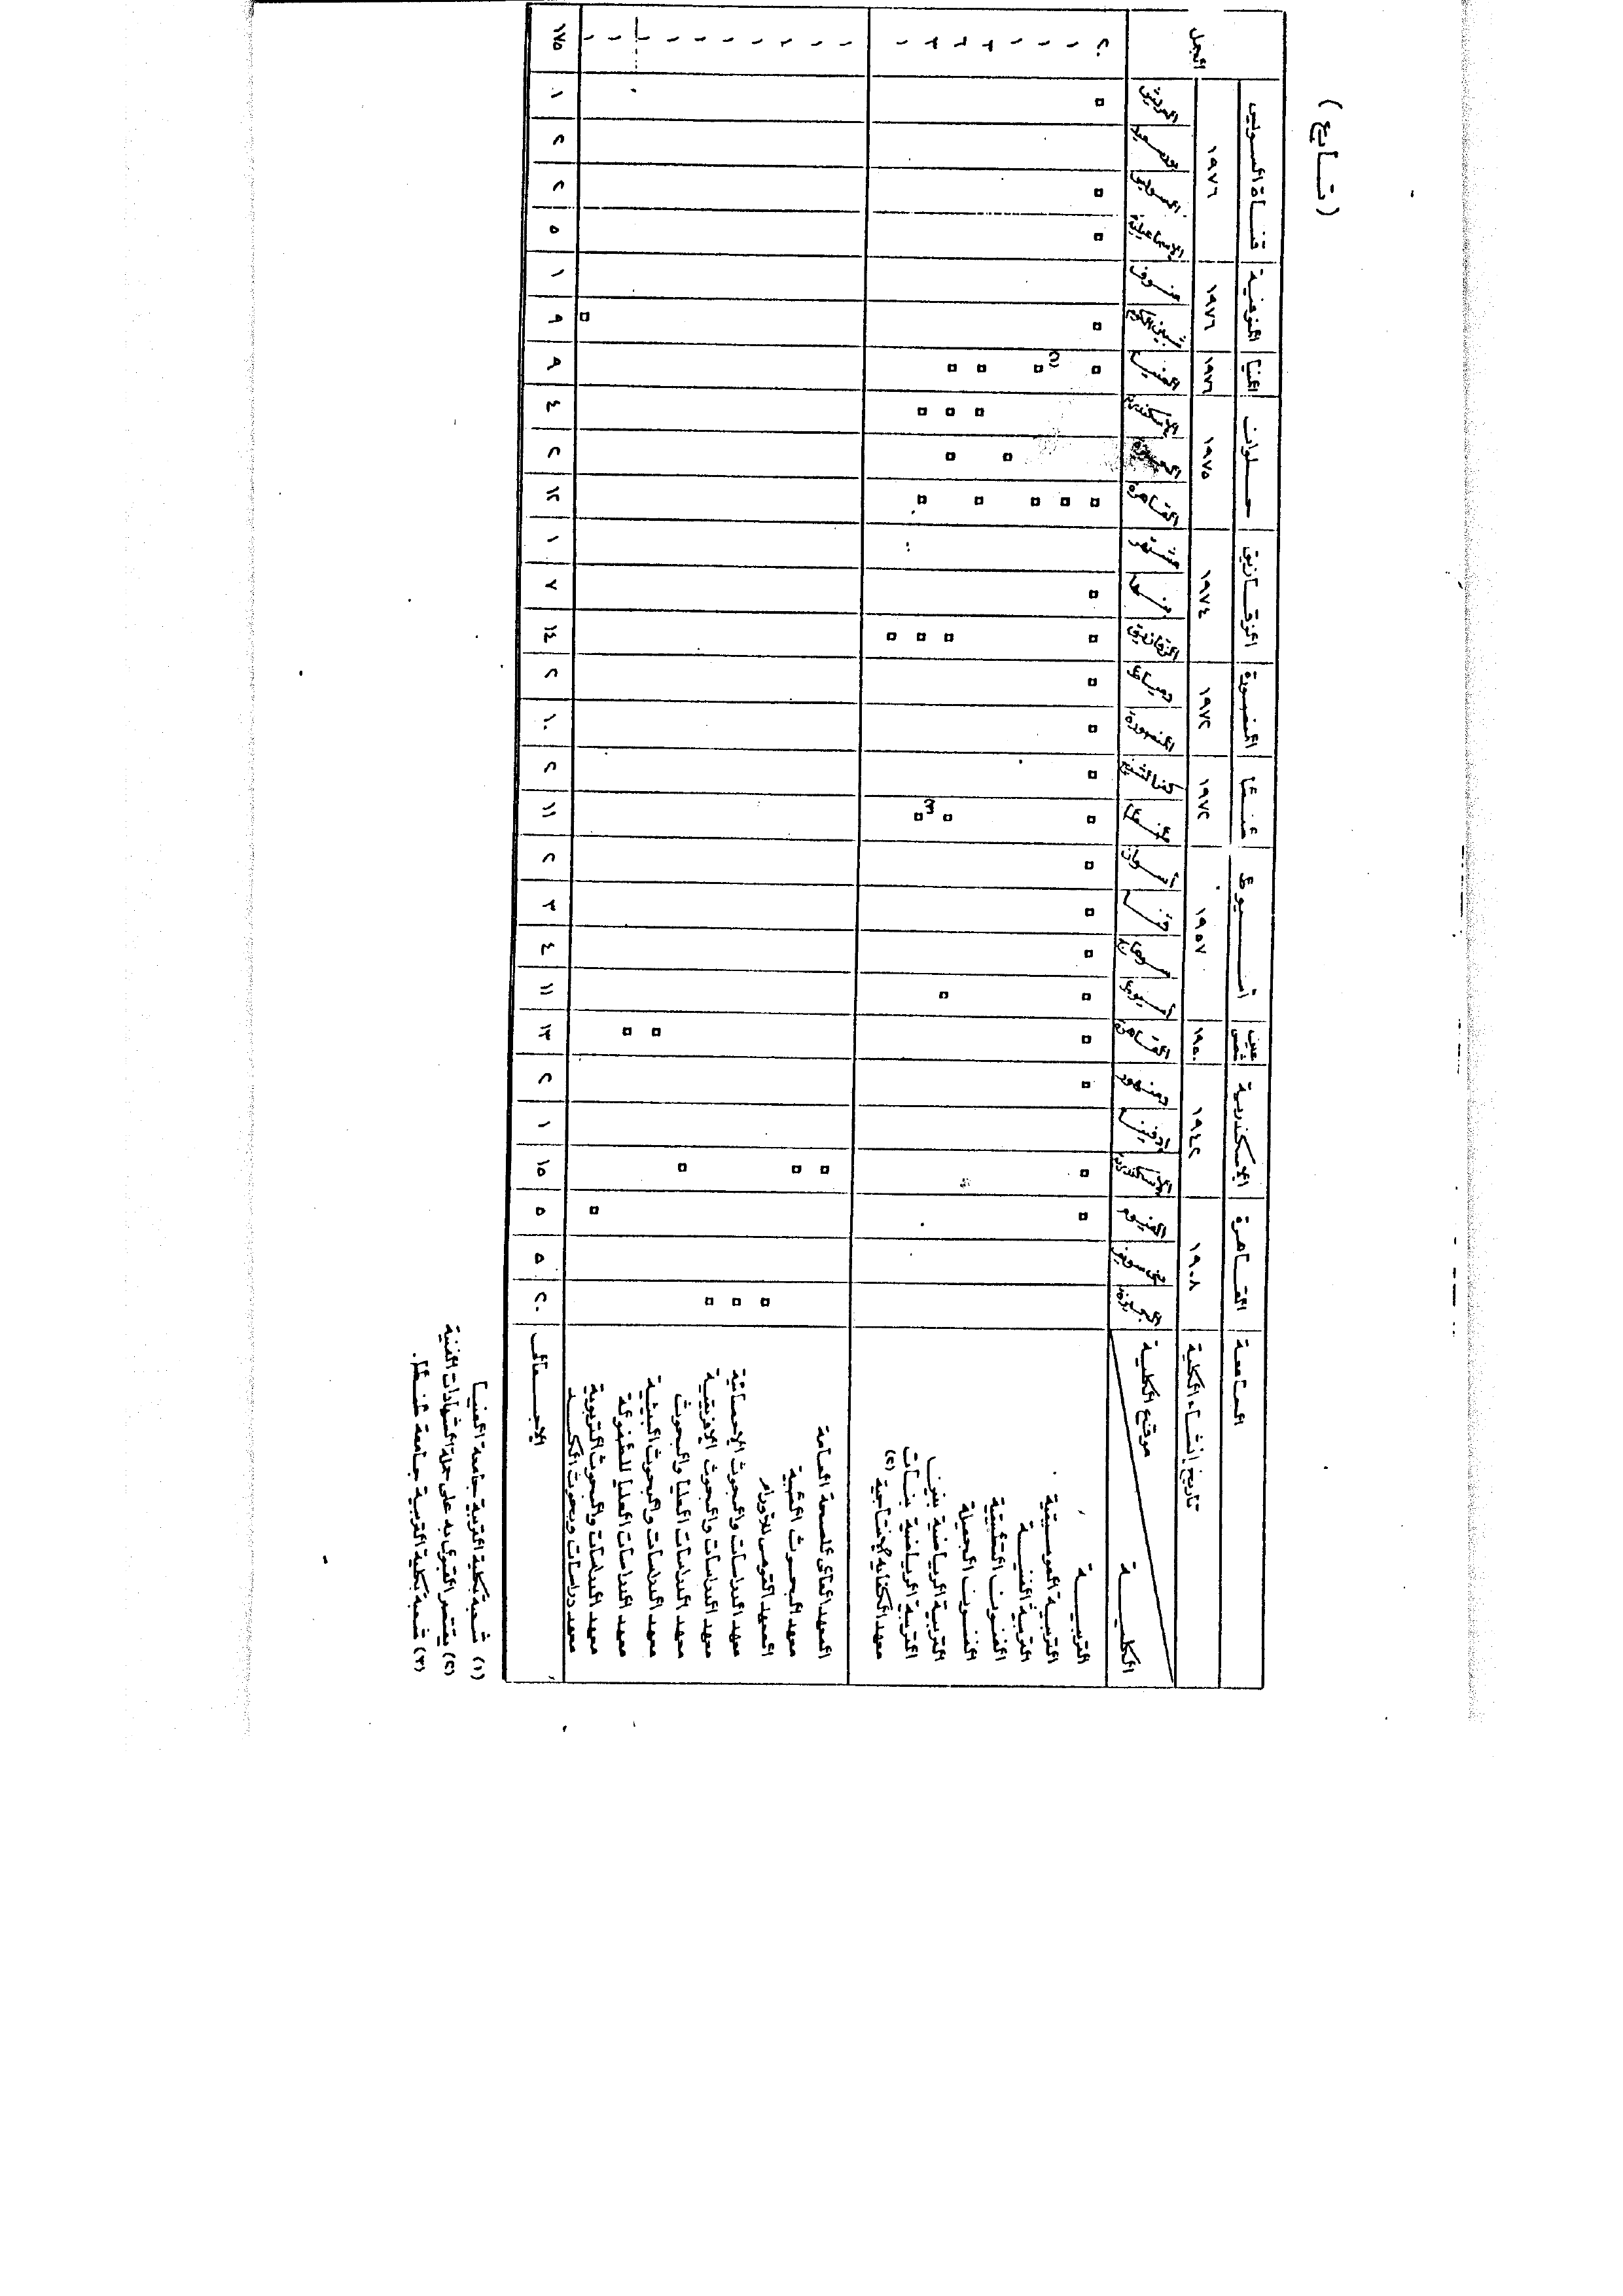 (تابع)
الجامعة
القاهرة
الإسكندرية
عين شمس
أسيوط
طنطا
المنصورة
الزقازيق
حلوان
المنيا
المنوفية
قناة السويس
تاريخ إنشاء الكلية
١٩٠٨
١٩٤٢
١٩٥٠
١٩٥٧
١٩٧٢
١٩٧٢
١٩٧٤
١٩٧٥
١٩٧٦
١٩٧٦
١٩٧٦
موقع الكلية
الكلية
الجيزة
بنى سويف
الفيوم
الإسكندرية
دمنهور
القاهرة
أسيوط
سوهاج
قنا
أسوان
طنطا
كفر الشيخ
المنصورة
دمياط
الزقازيق
بنها
مشتهر
القاهرة
الجيزة
الإسكندرية
المنيا
شبين الكوم
منوف
الإسماعيلية
السويس
بورسعيد
العريش
التربية ٢٠
التربية الموسيقية ١
التربية الفنية ١
الفنون التطبيقية ١
الفنون الجميلة ٣
التربية الرياضية بنين
التربية الرياضية بنات ٣
معهد الكفاية الإنتاجية (٢) ١
المعهد العالى للصحة العامة ١
معهد البحوث الطبية ١
المعهد القومى للأورام
معهد الدراسات والبحوث الإحصائية ١
معهد الدراسات والبحوث الإفريقية ١
معهد الدراسات العليا والبحوث ١
معهد الدراسات والبحوث البيئية ١
معهد الدراسات العليا للطفولة ١
معهد الدراسات والبحوث التربوية ١
معهد دراسات وبحوث ١
٢٠ ٥ ٥ ١٥ ١ ٢ ١٣ ١١ ٤ ٣ ٢ ١١ ٢ ١٠ ٢ ١٤ ٧ ١ ١٢ ٢ ٤ ٩ ٩ ١ ٥ ٢ ٢ ١ ١٧٥
(١) شعبة بكلية التربية جامعة المنيا
(٢) يقتصر القبول به على حملة الشهادات الفنية
(٣) شعبة بكلية التربية جامعة طنطا.